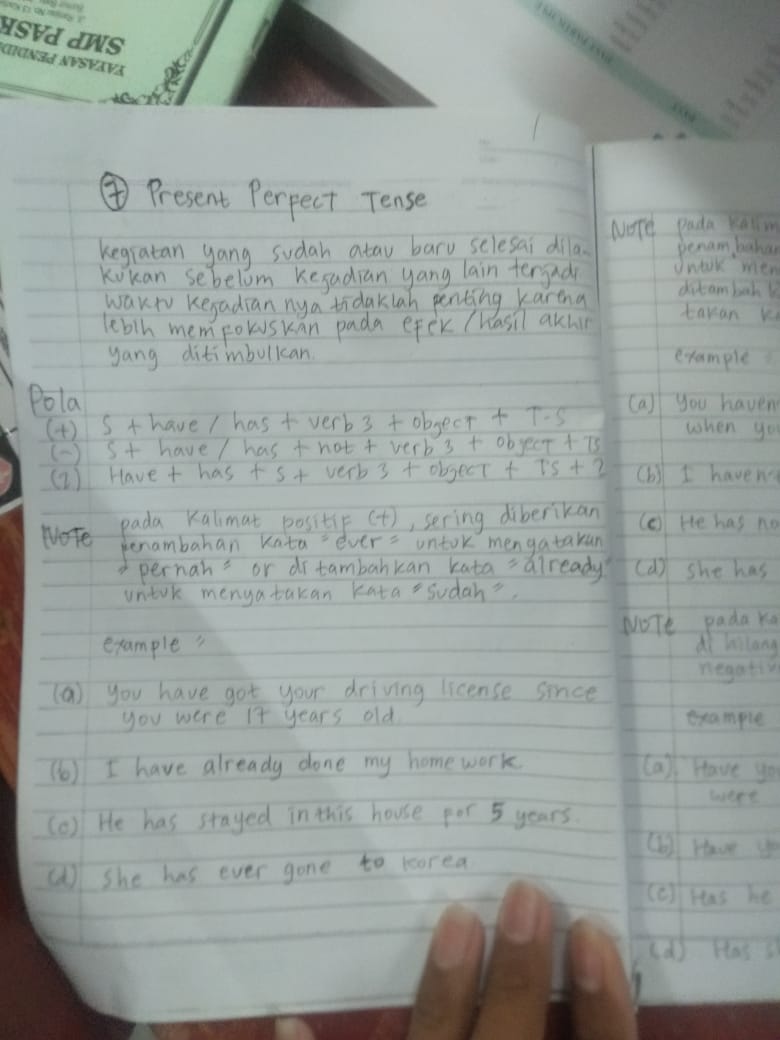 YAYASAN PENDIDI
SMP PASK
1
⑦ Present Perfect Tense
kegiatan yang sudah atau baru selesai dila-
kukan sebelum kejadian yang lain terjadi
waktu kejadian nya tidaklah penting karena
lebih memfokuskan pada efek / hasil akhir
yang ditimbulkan.
Pola
(+) S + have / has + verb 3 + object + T-S
(-) S + have / has + not + verb 3 + object + TS
(?) Have + has + S + verb 3 + object + TS + ?
NOTE pada kalimat positif (+), sering diberikan
penambahan kata "ever" untuk mengatakan
"pernah" or ditambahkan kata "already"
untuk menyatakan kata "sudah".
example =
(a) You have got your driving license since
you were 17 years old
(b) I have already done my homework.
(c) He has stayed in this house for 5 years.
(d) She has ever gone to korea
NOTE pada kalim
penambahan
untuk men
ditambah k
takan k
example
(a) You haven
when yo
(b) I haven
(c) He has no
(d) She has
NOTE pada ka
di hilang
negativ
example
(a) Have yo
were
(b) Have y
(c) Has he
(d) Has s